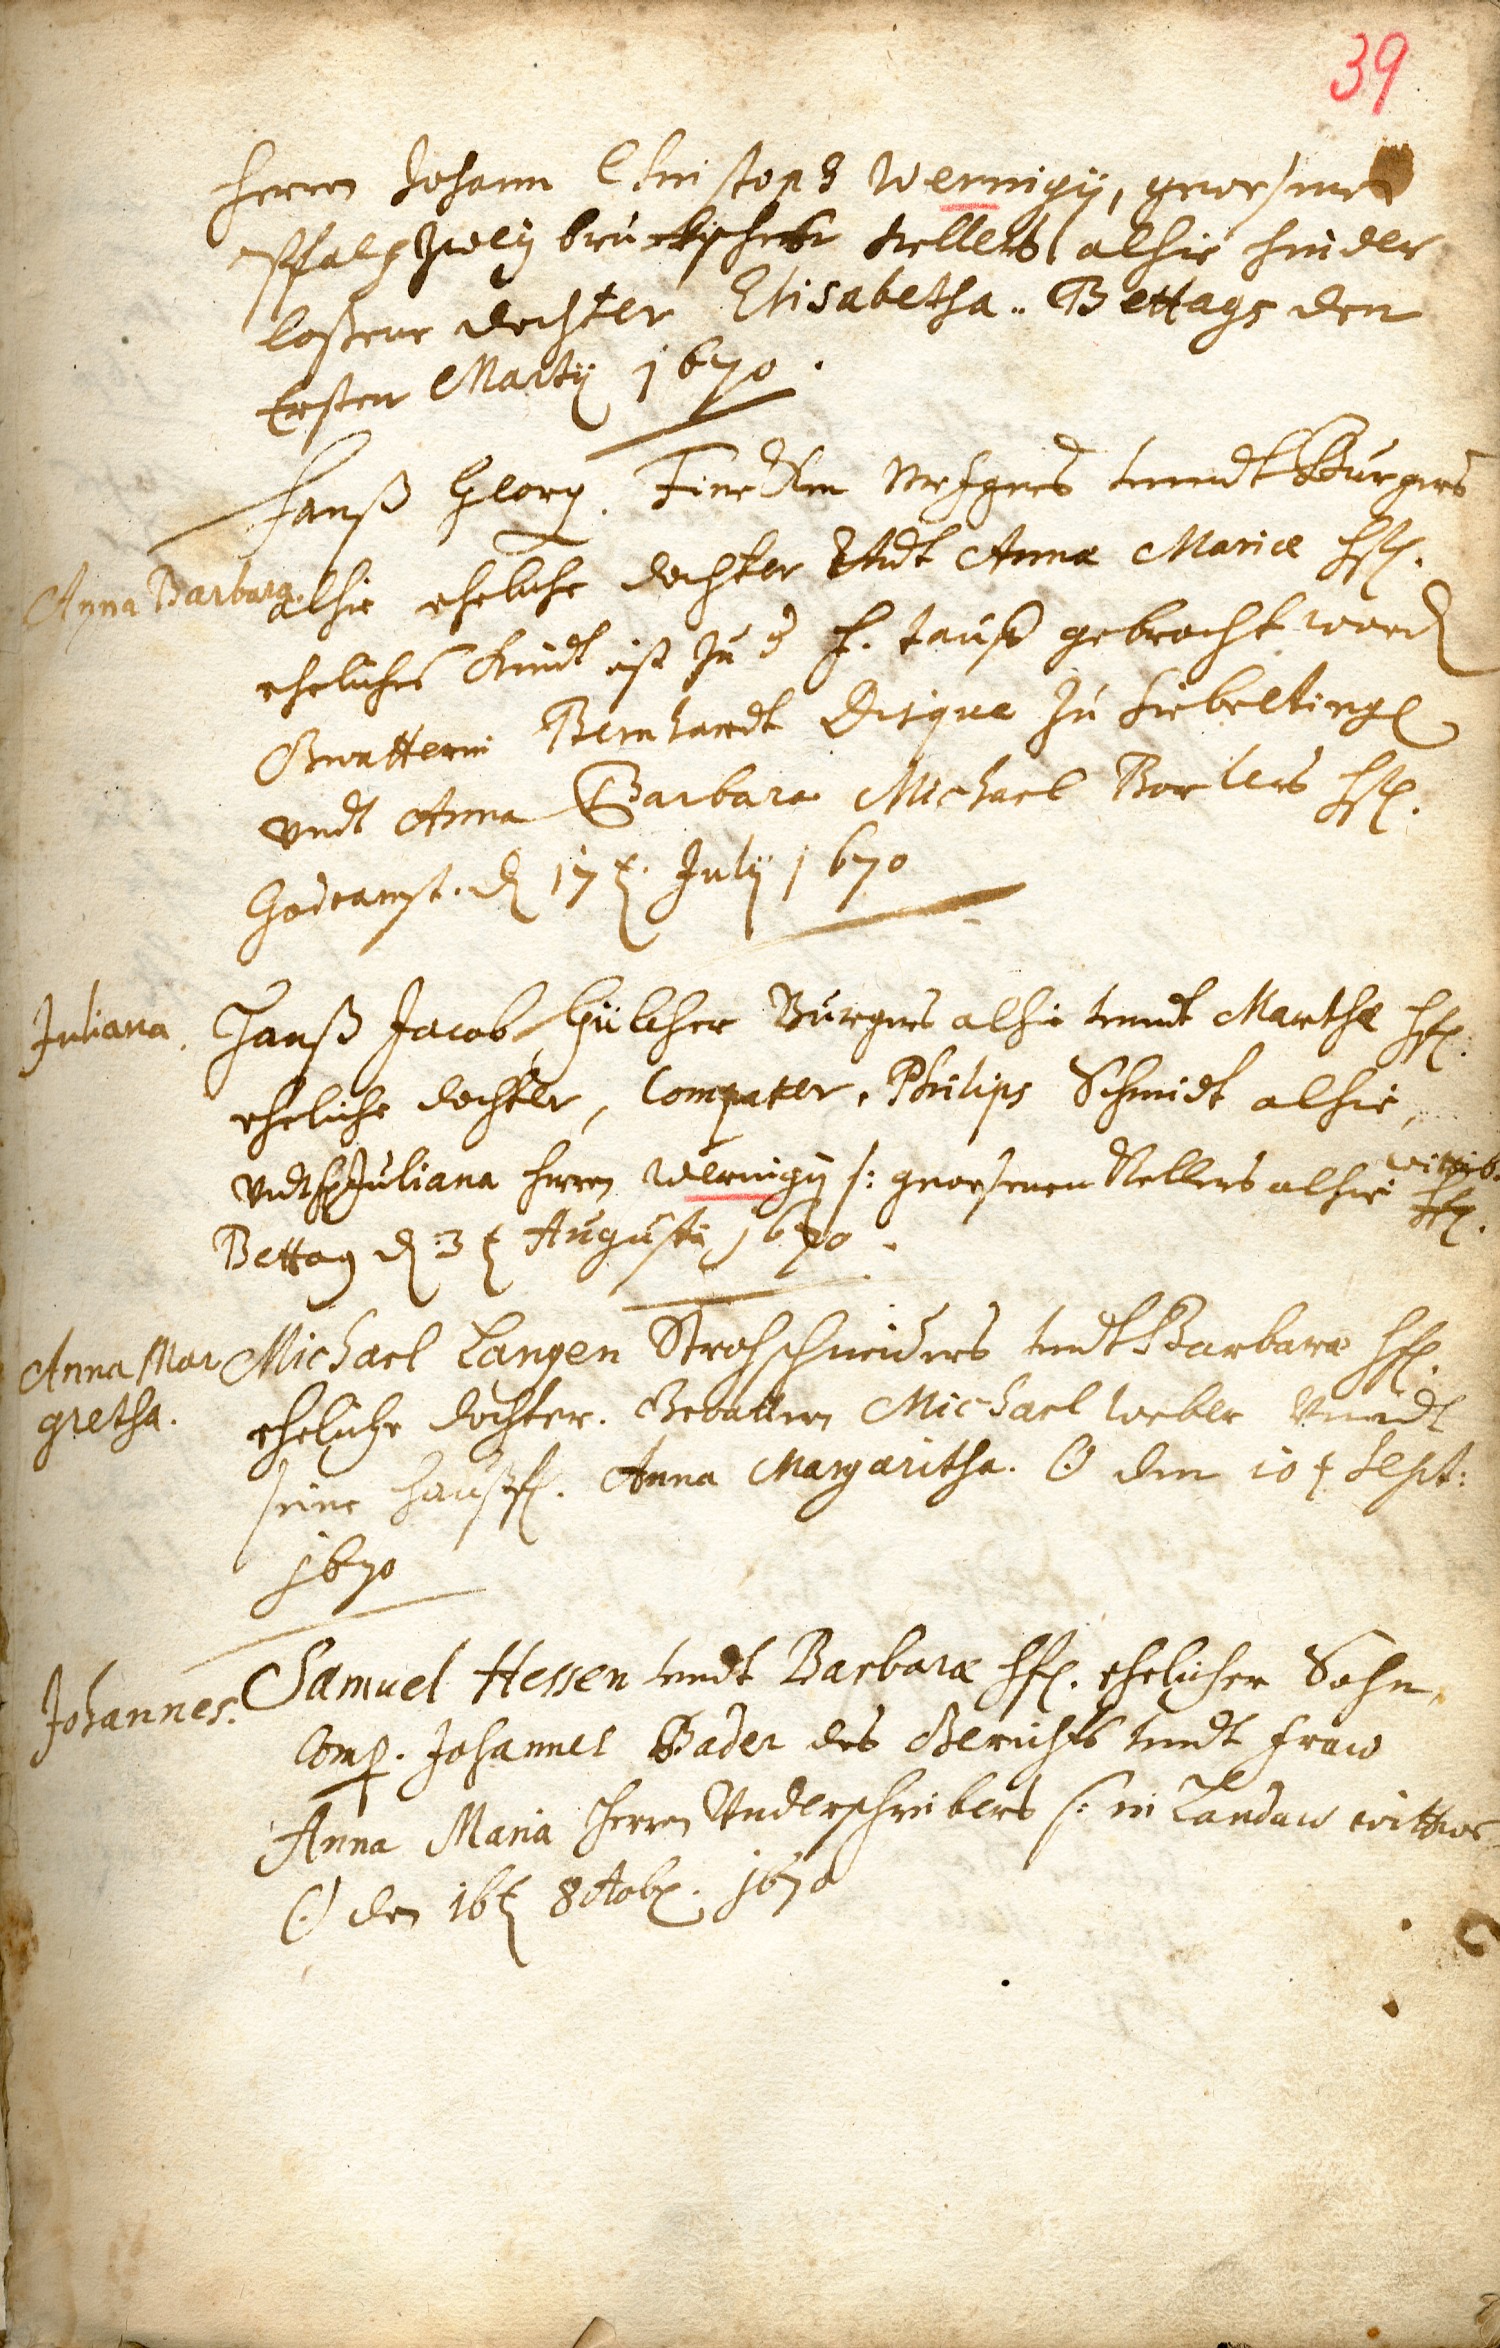 39
Herren Johann Christoph Wernigÿ, gewesene
Pfaltz Zweÿbrückischen Kellers alhie hinder
laßene dochter Elisabetha. Bettags den
Ersten Martÿ 1670.
Hanß Georg Metzgers undt Burgers
Anna Barbara.
alhie eheliche dochter Undt Annæ Mariæ hfr.
eheliches Kindt ist zu d h. tauff gebracht word
Gevattern Bernhardt Disque zu Siebelting
vndt Anna Barbara Michael hfr.
Godramst. d 17 t. Julÿ 1670
Juliana.
Hanß Jacob Gülcher Burgers alhie undt Marthæ hfr.
eheliche dochter, Compater. Philips Schmidt alhie,
vndt Juliana Herren Wernigÿ s: gewesenen Kellers alhie wittib.
Bettag d 3 t Augusti 1670.
Anna Mar
gretha.
Michael Langen Strohschneiders undt Barbaræ hfr.
eheliche dochter. Gevattern Michael Weber Vnndt
seine haußfr. Anna Margaritha. ☉ den 10 t Sept:
1670
Johannes.
Samuel Hessen undt Barbaræ hfr. ehelicher Sohn,
Comp. Johannes Bader des Gerichts undt fraw
Anna Maria Herren Underschreibers s: in Landaw wittwe
☉ den 16t 8tobr. 1670